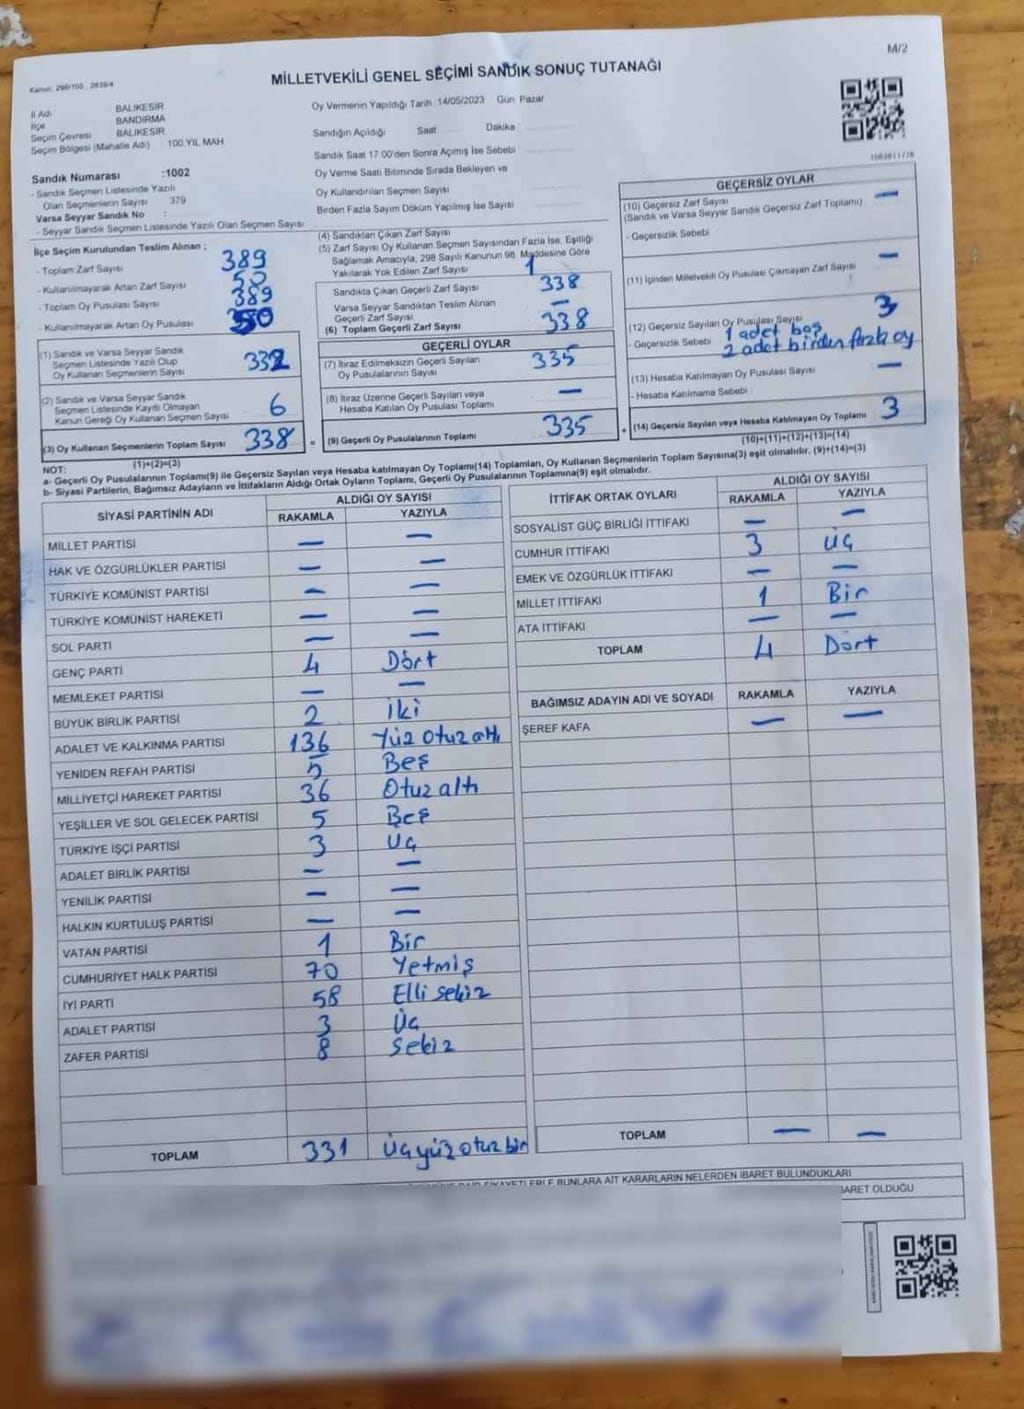 M/2
Kanun: 298/105 ; 2839/4
MİLLETVEKİLİ GENEL SEÇİMİ SANDIK SONUÇ TUTANAĞI
İl Adı : BALIKESİR
İlçe BANDIRMA
Seçim Çevresi BALIKESİR
Seçim Bölgesi (Mahalle Adı) : 100.YIL MAH
Sandık Numarası :1002
- Sandık Seçmen Listesinde Yazılı
Olan Seçmenlerin Sayısı 379
Varsa Seyyar Sandık No :
- Seyyar Sandık Seçmen Listesinde Yazılı Olan Seçmen Sayısı
Oy Vermenin Yapıldığı Tarih :14/05/2023 Gün: Pazar
Sandığın Açıldığı Saat Dakika
Sandık Saat 17.00'den Sonra Açımış İse Sebebi
Oy Verme Saati Bitiminde Sırada Bekleyen ve
Oy Kullandırılan Seçmen Sayısı
Birden Fazla Sayım Döküm Yapılmış İse Sayısı
İlçe Seçim Kurulundan Teslim Alınan ;
- Toplam Zarf Sayısı 389
- Kullanılmayarak Artan Zarf Sayısı 50
- Toplam Oy Pusulası Sayısı 389
- Kullanılmayarak Artan Oy Pusulası 50
(1) Sandık ve Varsa Seyyar Sandık
Seçmen Listesinde Yazılı Olup
Oy Kullanan Seçmenlerin Sayısı 332
(2) Sandık ve Varsa Seyyar Sandık
Seçmen Listesinde Kayıtlı Olmayan
Kanun Gereği Oy Kullanan Seçmen Sayısı 6
(3) Oy Kullanan Seçmenlerin Toplam Sayısı 338 =
(1)+(2)=(3)
(4) Sandıktan Çıkan Zarf Sayısı
(5) Zarf Sayısı Oy Kullanan Seçmen Sayısından Fazla İse, Eşitliği
Sağlamak Amacıyla, 298 Sayılı Kanunun 98. Maddesine Göre
Yakılarak Yok Edilen Zarf Sayısı 1
Sandıkta Çıkan Geçerli Zarf Sayısı 338
Varsa Seyyar Sandıktan Teslim Alınan
Geçerli Zarf Sayısı —
(6) Toplam Geçerli Zarf Sayısı 338
GEÇERLİ OYLAR
(7) İtiraz Edilmeksizin Geçerli Sayılan
Oy Pusulalarının Sayısı 335
(8) İtiraz Üzerine Geçerli Sayılan veya
Hesaba Katılan Oy Pusulası Toplamı —
(9) Geçerli Oy Pusulalarının Toplamı 335 +
GEÇERSİZ OYLAR
(10) Geçersiz Zarf Sayısı —
(Sandık ve Varsa Seyyar Sandık Geçersiz Zarf Toplamı)
- Geçersizlik Sebebi
(11) İçinden Milletvekili Oy Pusulası Çıkmayan Zarf Sayısı —
(12) Geçersiz Sayılan Oy Pusulası Sayısı 3
- Geçersizlik Sebebi 1 adet boş
2 adet birden fazla oy
(13) Hesaba Katılmayan Oy Pusulası Sayısı —
- Hesaba Katılmama Sebebi
(14) Geçersiz Sayılan veya Hesaba Katılmayan Oy Toplamı 3
(10)+(11)+(12)+(13)=(14)
NOT:
a- Geçerli Oy Pusulalarının Toplamı(9) ile Geçersiz Sayılan veya Hesaba katılmayan Oy Toplamı(14) Toplamları, Oy Kullanan Seçmenlerin Toplam Sayısına(3) eşit olmalıdır. (9)+(14)=(3)
b- Siyasi Partilerin, Bağımsız Adayların ve İttifakların Aldığı Ortak Oyların Toplamı, Geçerli Oy Pusulalarının Toplamına(9) eşit olmalıdır.
SİYASİ PARTİNİN ADI ALDIĞI OY SAYISI
RAKAMLA YAZIYLA
MİLLET PARTİSİ — —
HAK VE ÖZGÜRLÜKLER PARTİSİ — —
TÜRKİYE KOMÜNİST PARTİSİ — —
TÜRKİYE KOMÜNİST HAREKETİ — —
SOL PARTİ — —
GENÇ PARTİ 4 Dört
MEMLEKET PARTİSİ — —
BÜYÜK BİRLİK PARTİSİ 2 İki
ADALET VE KALKINMA PARTİSİ 136 Yüz otuz altı
YENİDEN REFAH PARTİSİ 5 Beş
MİLLİYETÇİ HAREKET PARTİSİ 36 Otuz altı
YEŞİLLER VE SOL GELECEK PARTİSİ 5 Beş
TÜRKİYE İŞÇİ PARTİSİ 3 Üç
ADALET BİRLİK PARTİSİ — —
YENİLİK PARTİSİ — —
HALKIN KURTULUŞ PARTİSİ — —
VATAN PARTİSİ 1 Bir
CUMHURİYET HALK PARTİSİ 70 Yetmiş
İYİ PARTİ 58 Elli sekiz
ADALET PARTİSİ 3 Üç
ZAFER PARTİSİ 8 Sekiz
TOPLAM 331 Üçyüz otuz bir
İTTİFAK ORTAK OYLARI ALDIĞI OY SAYISI
RAKAMLA YAZIYLA
SOSYALİST GÜÇ BİRLİĞİ İTTİFAKI — —
CUMHUR İTTİFAKI 3 Üç
EMEK VE ÖZGÜRLÜK İTTİFAKI — —
MİLLET İTTİFAKI 1 Bir
ATA İTTİFAKI — —
TOPLAM 4 Dört
BAĞIMSIZ ADAYIN ADI VE SOYADI RAKAMLA YAZIYLA
ŞEREF KAFA — —
TOPLAM — —
BUNLARA AİT KARARLARIN NELERDEN İBARET BULUNDUKLARI
İBARET OLDUĞU